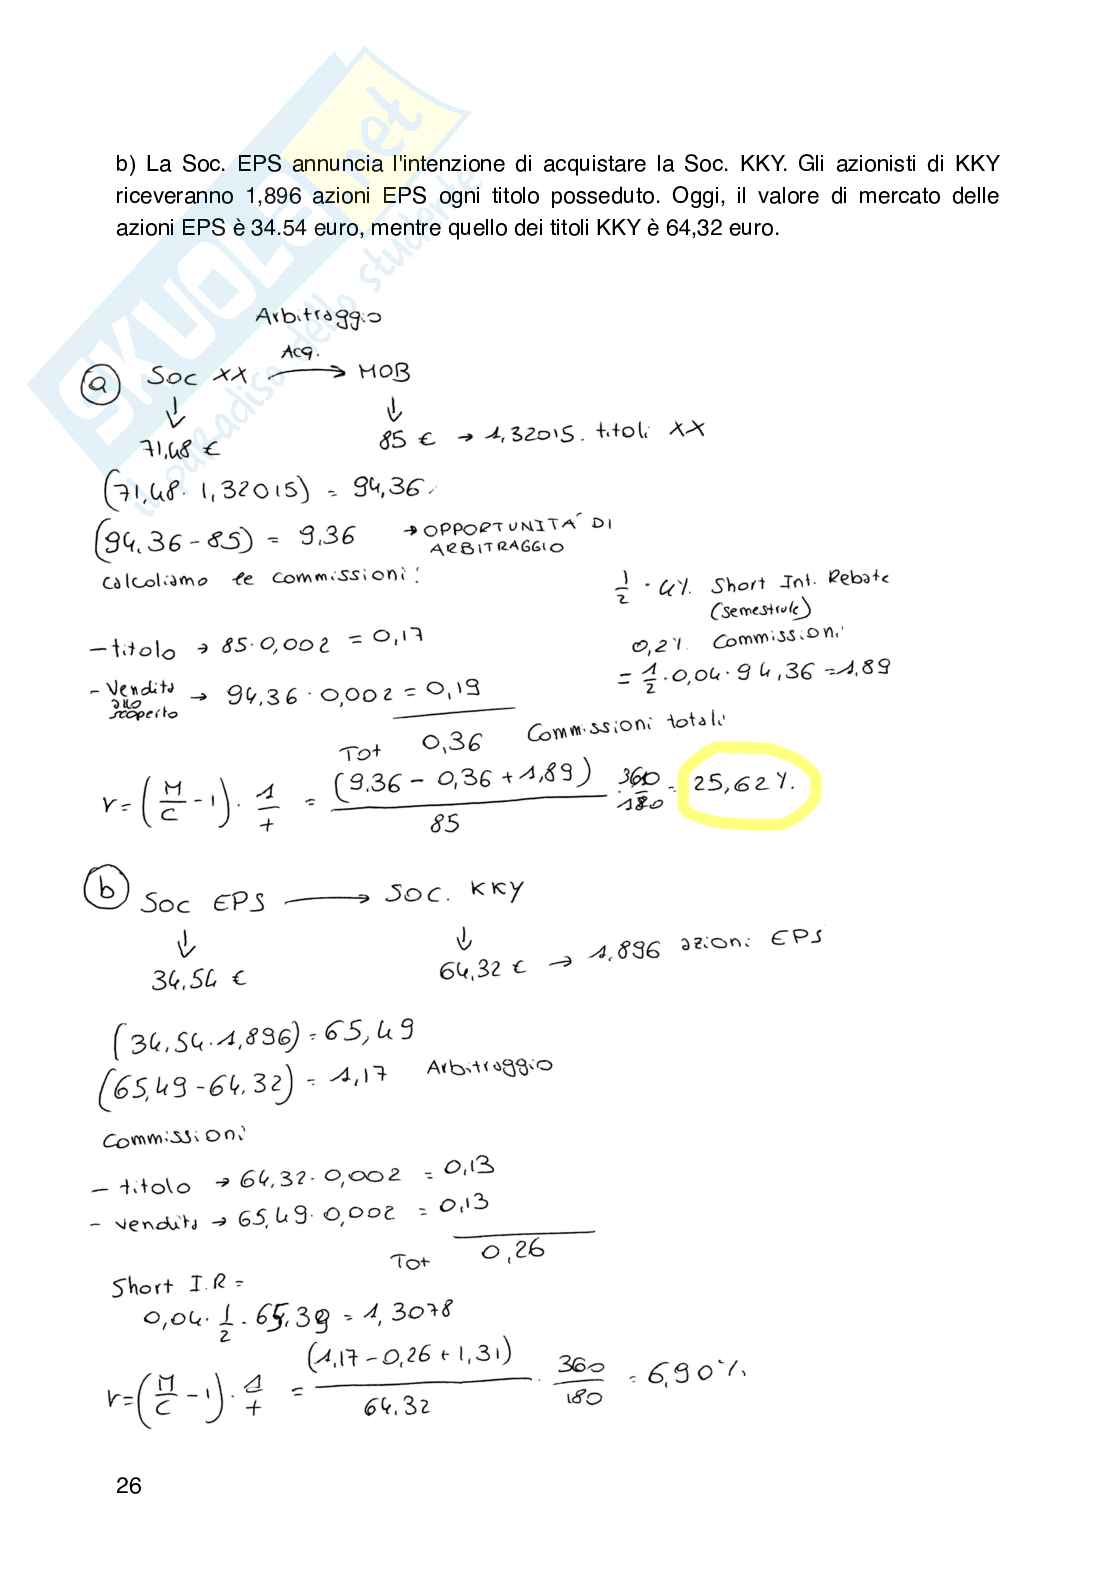 SKUOLA.net
il paradiso dello studente
b) La Soc. EPS annuncia l'intenzione di acquistare la Soc. KKY. Gli azionisti di KKY
riceveranno 1,896 azioni EPS ogni titolo posseduto. Oggi, il valore di mercato delle
azioni EPS è 34.54 euro, mentre quello dei titoli KKY è 64,32 euro.
Arbitraggio
a Soc XX Acq. → MOB
↓ ↓
71,48 € 85 € → 1,32015. titoli XX
(71,48 · 1,32015) = 94,36.
(94,36 - 85) = 9,36 → OPPORTUNITA' DI
ARBITRAGGIO
Calcoliamo le commissioni:
1/2 · 4%. Short Int. Rebate
(semestrale)
- titolo → 85·0,002 = 0,17
0,2%. Commissioni
= 1/2 · 0,04 · 94,36 = 1,89
- Vendita allo scoperto → 94,36 · 0,002 = 0,19
Tot 0,36 Commissioni totali
r = (M/C - 1) · 1/t = (9.36 - 0,36 + 1,89)/85 · 360/180 = 25,62%.
b Soc EPS → SOC. KKY
↓ ↓
34,54 € 64,32 € → 1,896 azioni EPS
(34,54 · 1,896) = 65,49
(65,49 - 64,32) = 1,17 Arbitraggio
Commissioni
- titolo → 64,32 · 0,002 = 0,13
- vendita → 65,49 · 0,002 = 0,13
Tot 0,26
Short I.R =
0,04 · 1/2 · 65,39 = 1,3078
r = (M/C - 1) · 1/t = (1,17 - 0,26 + 1,31)/64,32 · 360/180 = 6,90%.
26